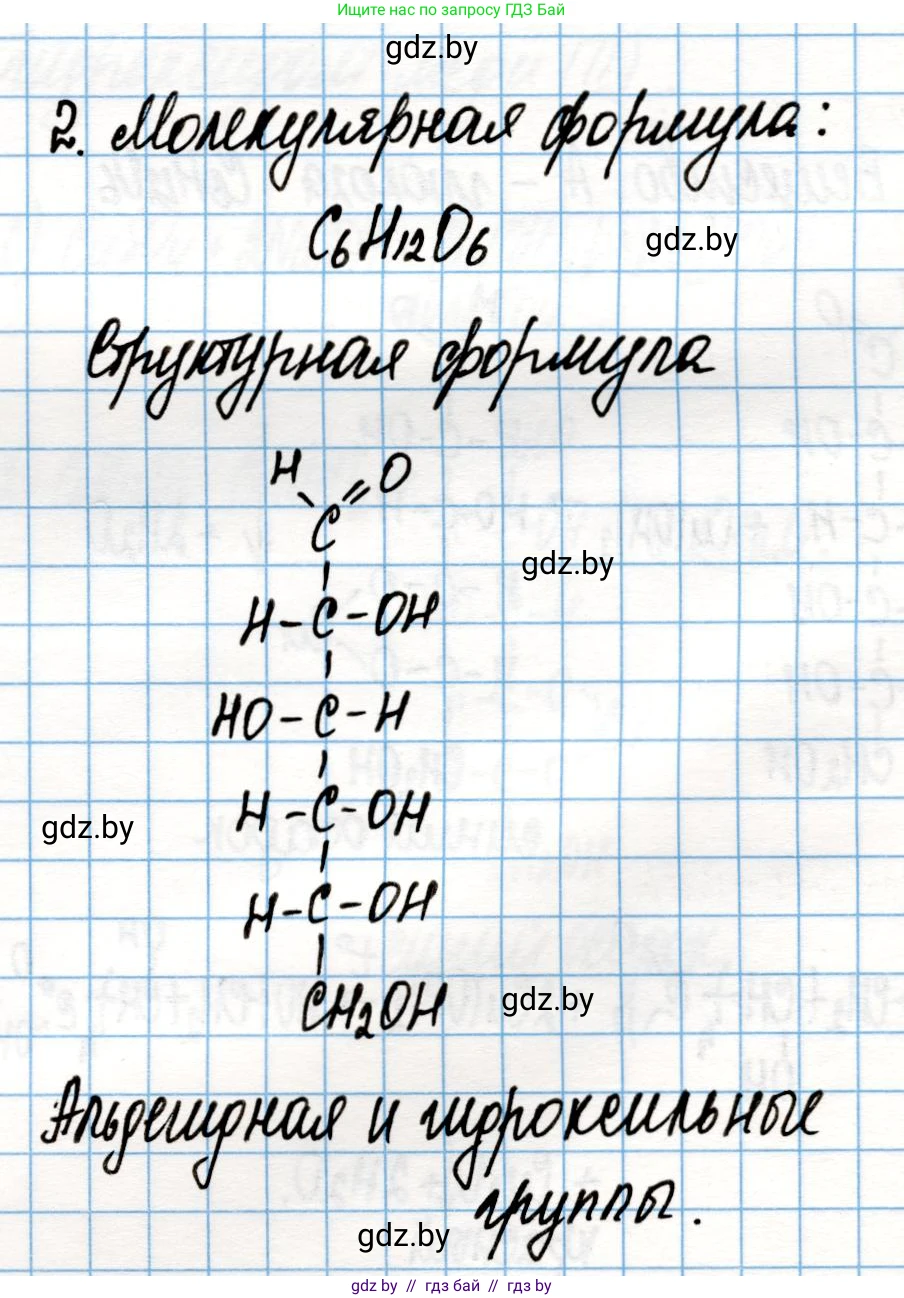 Ищите нас по запросу ГДЗ Бай
gdz.by
2. Молекулярная формула:
C₆H₁₂O₆
gdz.by
Структурная формула
H O
C
gdz.by
H-C-OH
HO-C-H
H-C-OH
gdz.by
H-C-OH
CH₂OH
gdz.by
Альдегидная и гидроксильные
группы.
gdz.by
gdz.by // гдз бай // gdz.by